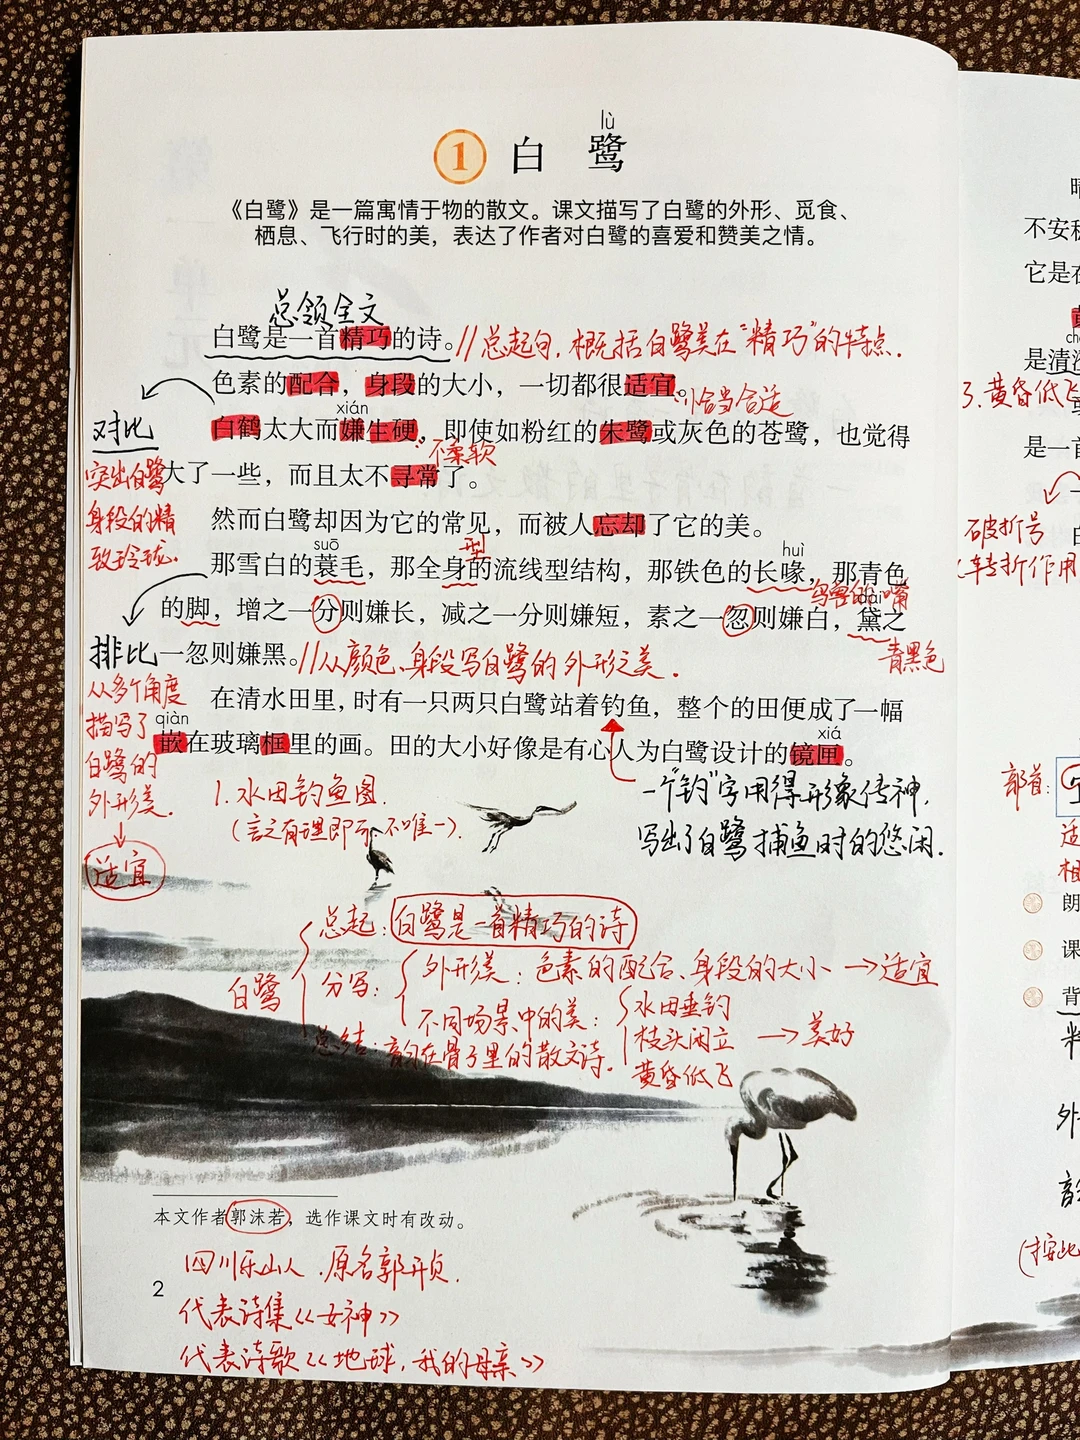 lù
1 白鹭
《白鹭》是一篇寓情于物的散文。课文描写了白鹭的外形、觅食、
栖息、飞行时的美，表达了作者对白鹭的喜爱和赞美之情。
总领全文
白鹭是一首精巧的诗。//总起句，概括白鹭美在“精巧”的特点.
色素的配合，身段的大小，一切都很适宜。
恰当合适
xián
白鹤太大而嫌生硬，即使如粉红的朱鹭或灰色的苍鹭，也觉得
不柔软
大了一些，而且太不寻常了。
对比
突出白鹭
身段的精
致玲珑.
然而白鹭却因为它的常见，而被人忘却了它的美。
suō
型
huì
那雪白的蓑毛，那全身的流线型结构，那铁色的长喙，那青色
鸟兽的嘴
dài
的脚，增之一分则嫌长，减之一分则嫌短，素之一忽则嫌白，黛之
青黑色
一忽则嫌黑。//从颜色、身段写白鹭的外形之美.
排比
从多个角度
描写了
白鹭的
外形美.
适宜
在清水田里，时有一只两只白鹭站着钓鱼，整个的田便成了一幅
qiàn
xiá
嵌在玻璃框里的画。田的大小好像是有心人为白鹭设计的镜匣。
一个“钓”字用得形象传神，
写出了白鹭捕鱼时的悠闲.
1.水田钓鱼图.
(言之有理即可,不唯一).
白鹭
总起:白鹭是一首精巧的诗
分写:
外形美:色素的配合、身段的大小→适宜
不同场景中的美:
水田垂钓
枝头闲立
黄昏低飞
→美好
总结:韵在骨子里的散文诗.
本文作者郭沫若，选作课文时有改动。
四川乐山人.原名郭开贞.
代表诗集《女神》
代表诗歌《地球,我的母亲》
2
不安稳
它是在
是清澄
3.黄昏低飞
是一首
破折号
转折作用
郭首:
适
相
朗
课
背
外
(按此